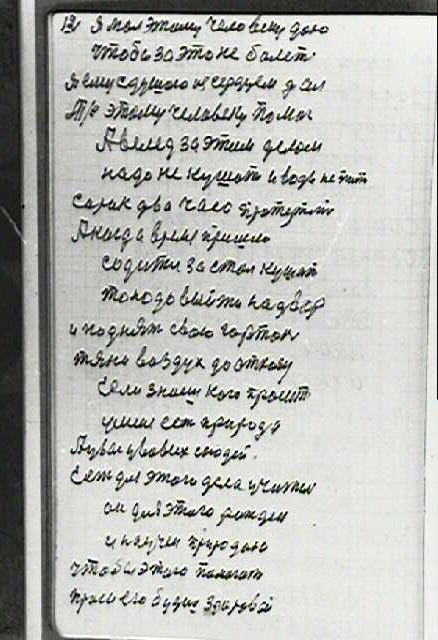 13) Я мол этому человеку даю
чтобы за это не болет
Я ему с душою и сердцем дал
Я этому человеку помог
А вслед за этим делом
надо не кушать и воды не пит
сорак два часо протерпит
А когда время пришло
содится за стол кушат
тогода выйти на двор
и поднят свою гортон
тяни воздух до отказу
Если знаеш кого просит
у мея ест природа
А у вас у вових людей.
Ест для этого дела учител
он для этого рожден
и научен природою
чтобы этого помогат
проси его будиш здоровой